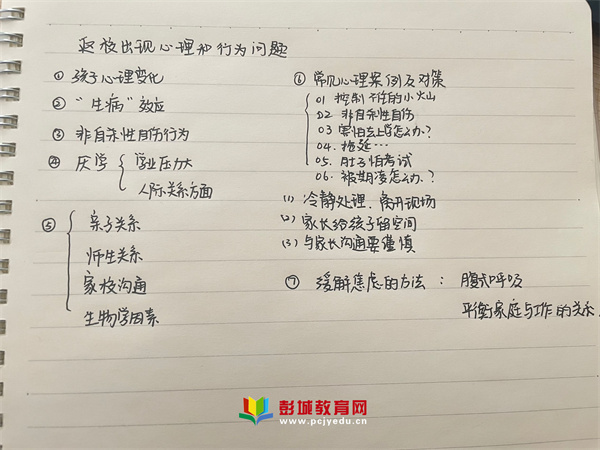 返校出现心理和行为问题
① 孩子心理变化
② “生病”效应
③ 非自杀性自伤行为
④ 厌学 { 学业压力大
人际关系方面
⑤ { 亲子关系
师生关系
家校沟通
生物学因素
⑥ 常见心理案例及对策
01 控制不住的小火山
02 非自杀性自伤
03 害怕去上学怎么办?
04. 拖延…
05. 肚子怕考试
06. 被期凌怎么办.?
(1) 冷静处理、离开现场
(2) 家长给孩子留空间
(3) 与家长沟通要谨慎
⑦ 缓解焦虑的方法: 腹式呼吸
平衡家庭与工作的关系.
彭城教育网
www.pcjyedu.cn